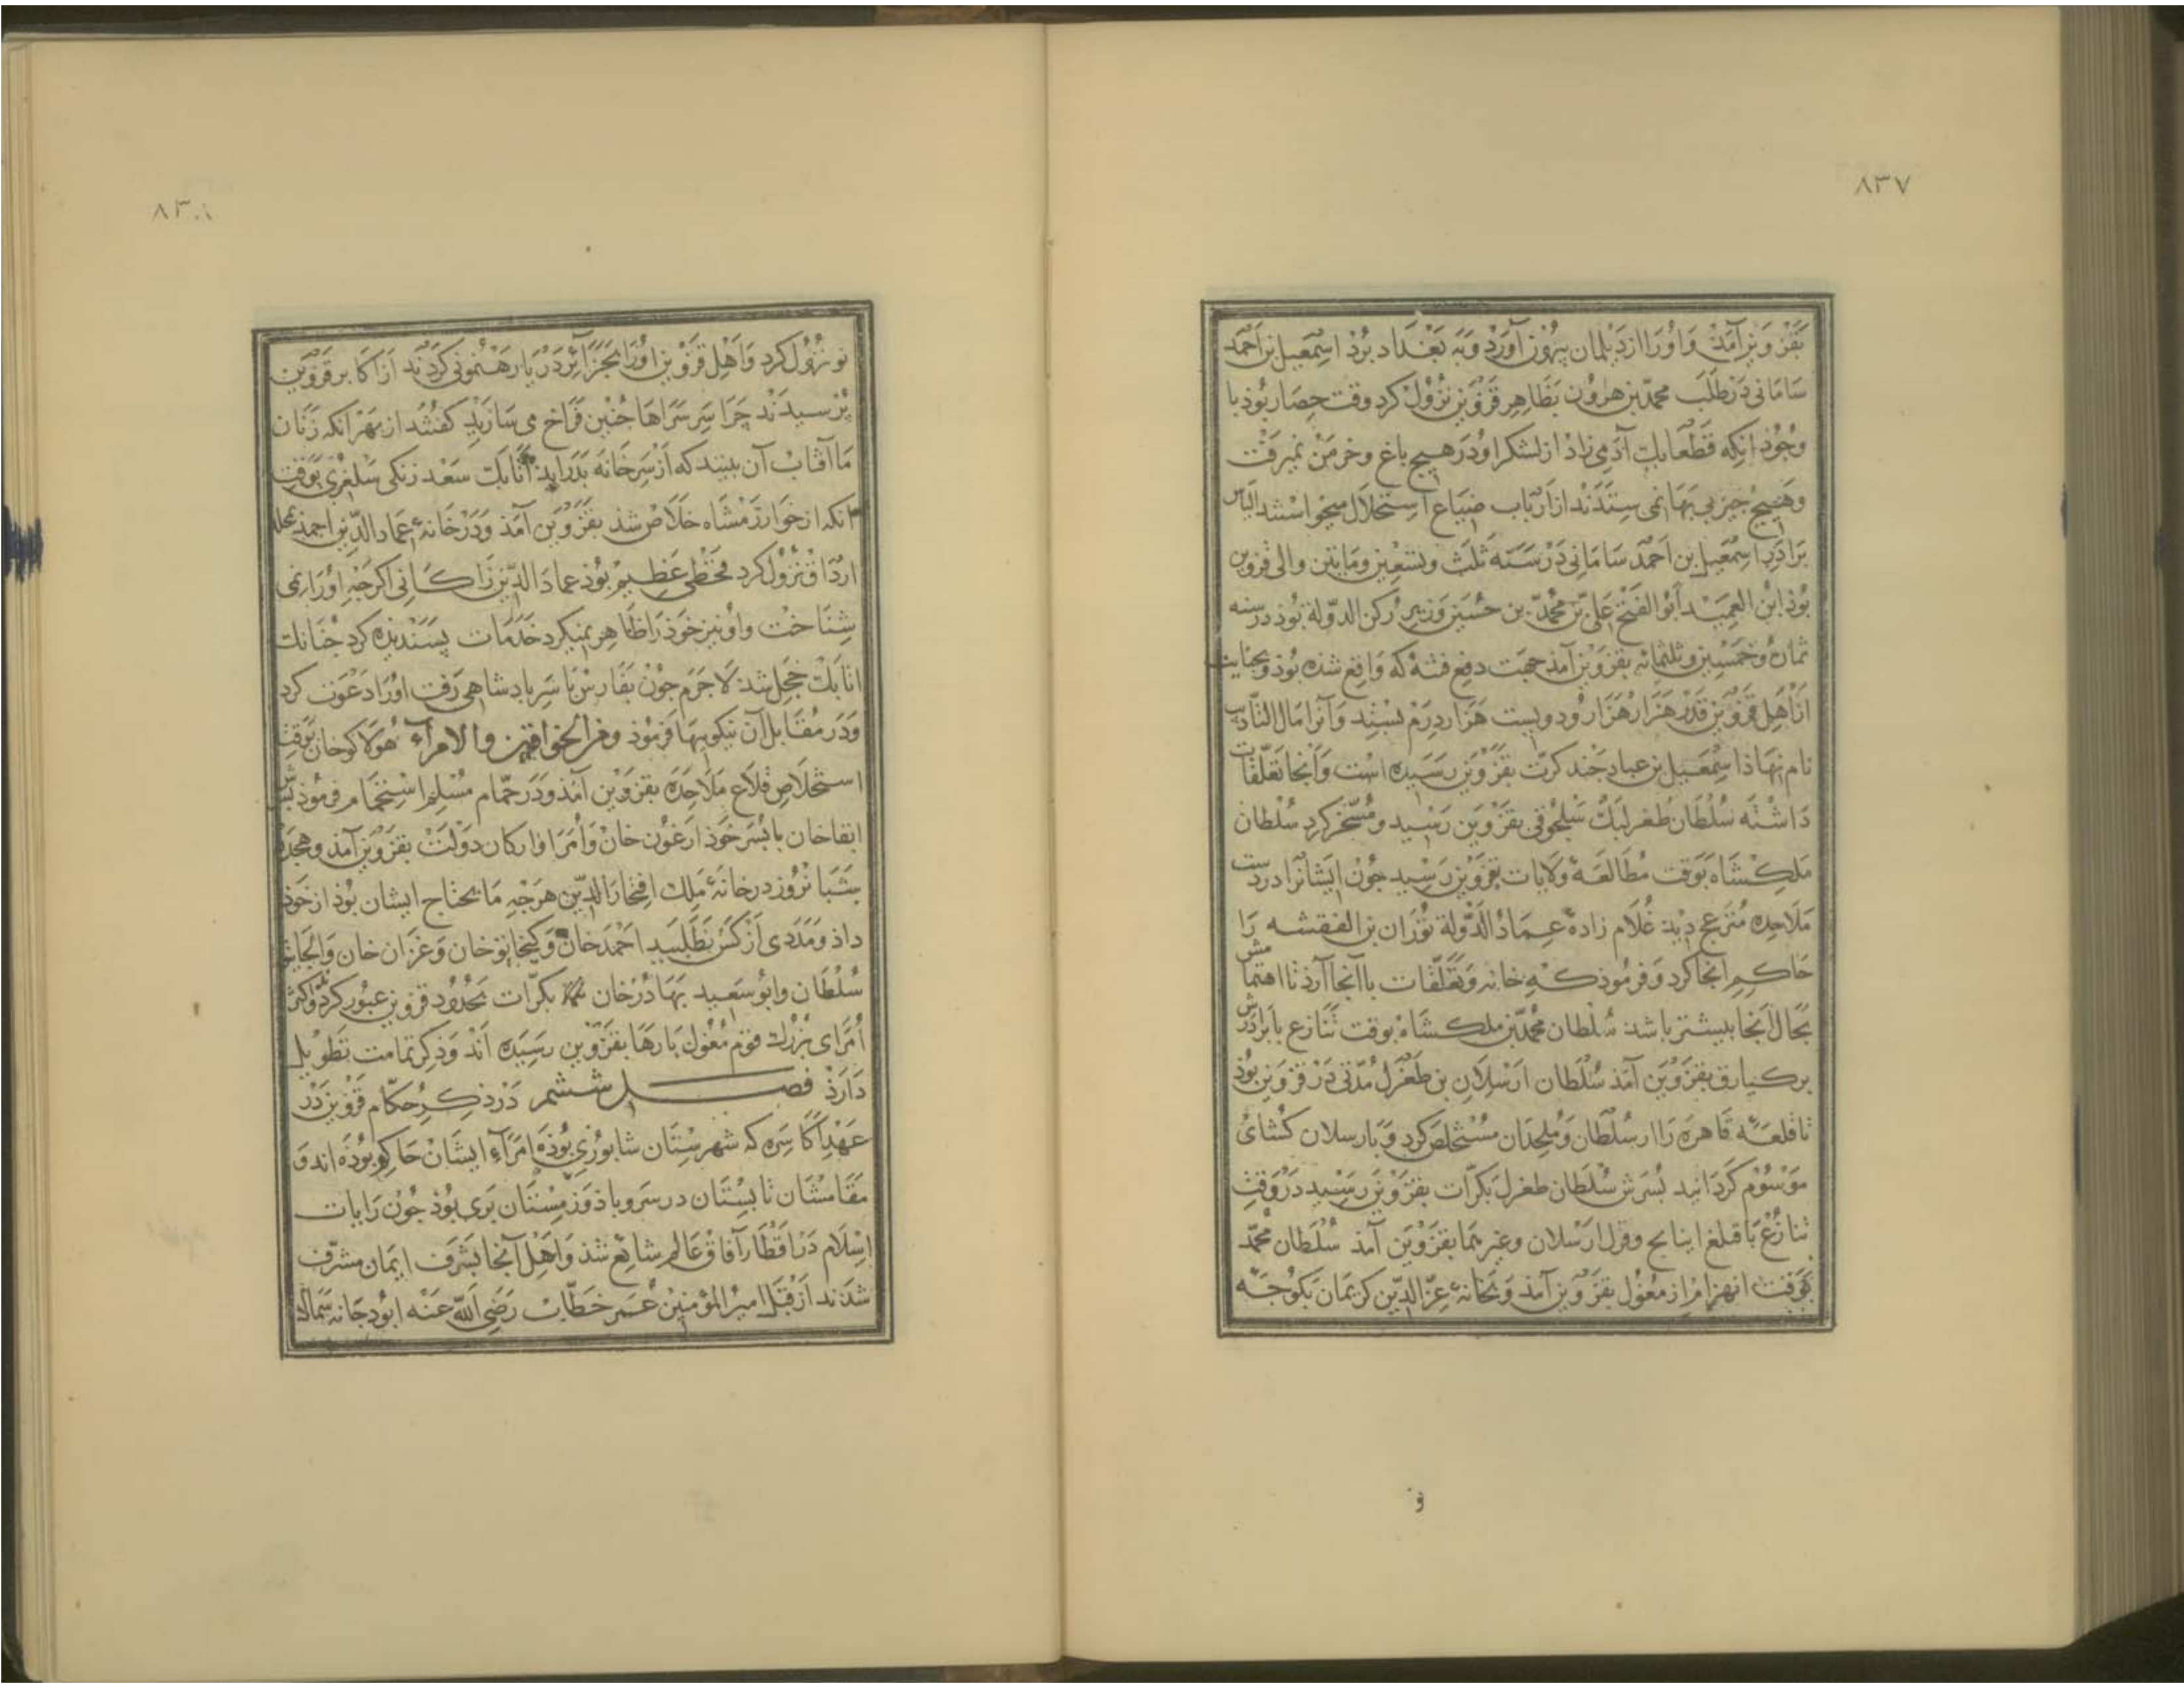 ٨٣٧
بقزوین آمَذ وَاوُرا از دَیلمان بیرون آورد وَبه بَغداد برد اسمعیل بن احمَد
سامانی دَر طَلَب محمّد بن هروُن بظاهر قزوین نزُول کرد وقت حصار بُوذ با
وجُوذ انکه قطعا یک آدمی زاد از لشکر او دَر هیچ باغ وخرمن نمیرفت
وهیچ جیز بی بها نمی ستدند از ارباب ضیاع استحلال میخواستند الیاس
برادر اسمعیل بن احمد سامانی دَر سَنه ثلث وتسعین ومایتین والی قزوین
بُوذ ابن العمید ابو الفتح علی بن محمّد بن حسین وزیر رکن الدولة بُوذ در سنه
ثمان وخمسین وثلثمایه بقزوین آمذ جهت دفع فتنه که واقع شذه بُوذ وبجنایت
از اهل قزوین قدر هزار هزار ودویست هزار درم بستد وآنرا مال التادیب
نام نهاذ اسمعیل بن عباد جند کرت بقزوین رسیده است وآنجا تعلّقات
داشته سُلطان طغرلبک سلجوقی بقزوین رسید ومسخّر کرد سُلطان
ملکشاه بوقت مُطالعهٔ ولایات بقزوین رسید جون ایشانرا در دست
ملاحده منزعج دید غلام زادهٔ عماد الدَّولة توران بن الفقشه را
حاکم انجا کرد وفرموذ که خانه وتعلّقات باآنجا آرذ تا اهتمامش
بحال آنجا بیشتر باشد سُلطان محمّد بن ملکشاه بوقت تنازع با برادرش
برکیارق بقزوین آمَذ سُلطان ارسلان بن طغرل مُدّتی دَر قزوین بُوذ
تا قلعهٔ قاهره را از سُلطان وملحدان مستخلص کرد وبارسلان کشای
موسُوم کردانید بسرش سُلطان طغرل بکرّات بقزوین رسید دَر وقت
تنازع با قتلغ اینانج وقزل ارسلان وغیرهما بقزوین آمذ سُلطان محمّد
بوقت انهزام از مغُول بقزوین آمذ وبخانهٔ عزّ الدّین کریمان بکوجه
و
٨٣٨
نو نزول کرد واَهل قزوین اورا بجزایر دَریا رهنمونی کردند از اکابر قزوین
پرسیدند چرا سر سراها جنین فراخ می سازید کفتند از بهر انکه زنان
ما آفتاب آن بینند که از سر خانه بدر اید اتابک سَعد زنکی سلغری بوقت
آنکه از خوارزمشاه خلاص شذ بقزوین آمذ ودَر خانهٔ عماد الدّین احمد بمحله
ارداق نزول کرد قحطی عظیم بوذ عماد الدّین زاکانی اکرجه اورا نمی
شناخت واو نیز خوذ را ظاهر نمیکرد خدمات پسندیده کرد جنانک
اتابک خجل شد لاجرم جون بفارس با سر بادشاهی رفت اورا دعوت کرد
ودَر مُقابل آن نیکویها فرموذ ومن الخواقین والامرآء هولاکوخان بوقت
استخلاص قلاع ملاحده بقزوین آمذ ودَر حمّام مُسلم استحمام فرموذ بسرش
ابقاخان با بسر خوذ ارغون خان وامرا وارکان دولت بقزوین آمذ وهجده
شبانروز در خانهٔ ملک افتخار الدّین هرجه ما یحتاج ایشان بوذ از خوذ
داذ ومَدَدی از کس نطلبید احمدخان وکیخاتوخان وغزان خان والجایتو
سُلطان وابو سعید بهادُرخان بکرّات بحُدود قزوین عبور کرد واکثر
اُمرای بزرک قوم مُغول بارها بقزوین رسیده اند وذکر تمامت تطویل
دارذ فصل ششم دَر ذکر حکّام قزوین دَر
عَهد اکاسره که شهرستان شابوری بوذه امرآء ایشان حاکم بوذه اند و
مقامشان تابستان در سروباذ وزمستان بری بُوذ جُون رایات
اسلام دَر اقطار آفاق عالم شائع شذ واهل آنجا بشرف ایمان مشرّف
شدند از قبل امیر المؤمنین عُمر خطّاب رَضی الله عَنه ابودجانه سماک